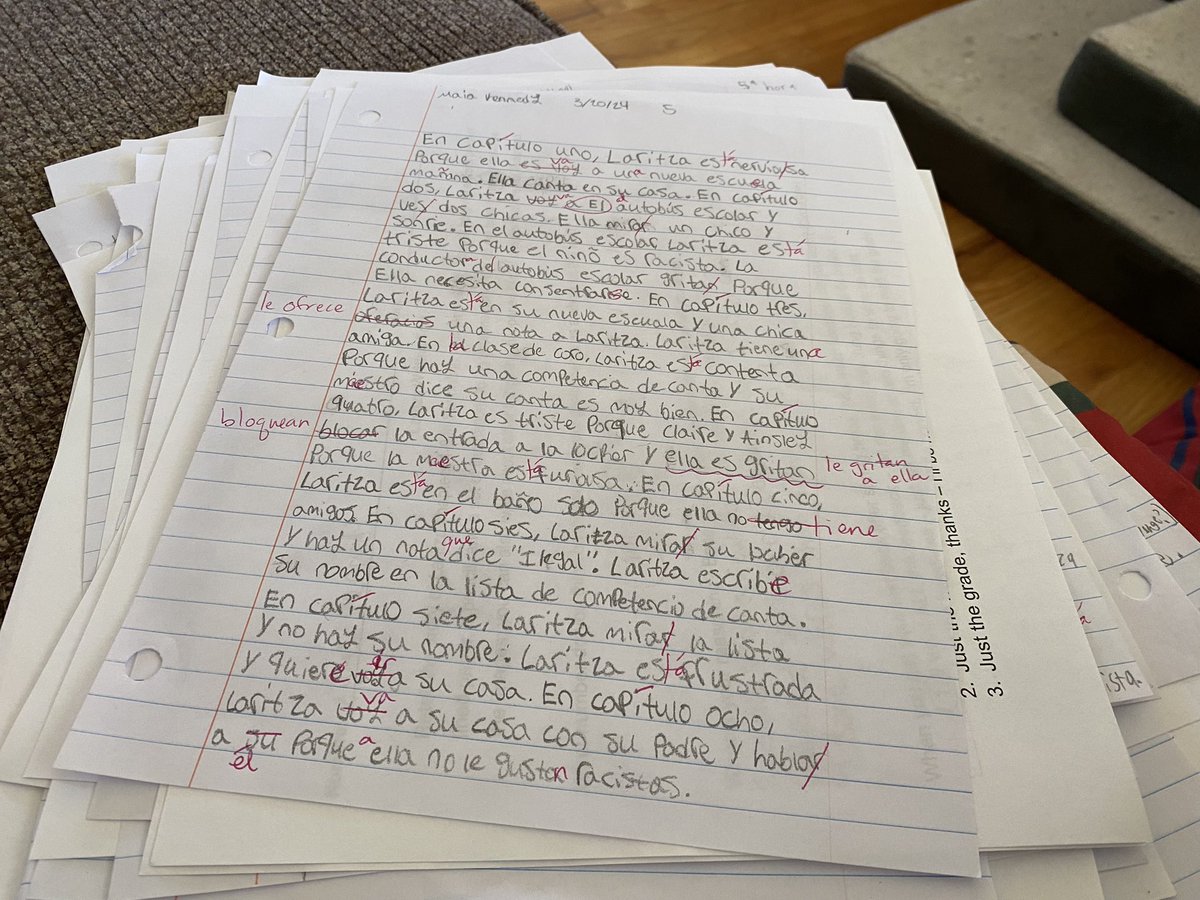 Maia 3/20/24 5
5ª hora
En Capítulo uno, Laritza está nerviosa
Porque ella es voy va a una nueva escuela
mañana. Ella canta en su casa. En capítulo
dos, Laritza voy va a El autobús escolar y
ves dos chicas. Ella mirar un chico y
sonrie. En el autobús escolar Laritza está
triste Porque el nino es racista. La
conductor del autobús escolar gritar Porque
Ella necesita consentrarse. En capítulo tres,
Laritza está en su nueva escuala y una chica
le ofrece
una nota a Laritza. Laritza tiene una
amiga. En la clase de coro, Laritza está contenta
Porque hay una competencia de canta y su
maestro dice su canta es moy bien. En capítulo
quatro, Laritza es triste Porque Claire y Ainsley
bloquean blocar la entrada a la y ella es gritan le gritan
a ella
Porque la maestra está furiosa. En capítulo cinco,
Laritza está en el baño solo Porque ella no tengo tiene
amigos. En capítulo sies, Laritza mirar su
y hay un nota que dice "Ilegal". Laritza escribie
su nombre en la lista de competencio de canta.
En capítulo siete, Laritza mirar la lista
y no hay su nombre. Laritza está frustrada
y quiere voy ir a su casa. En capítulo ocho,
Laritza voy va a su casa con su Padre y hablar
a su él Porque a ella no le gustan racistas.
2. Just the
3. Just the grade, thanks – I'll